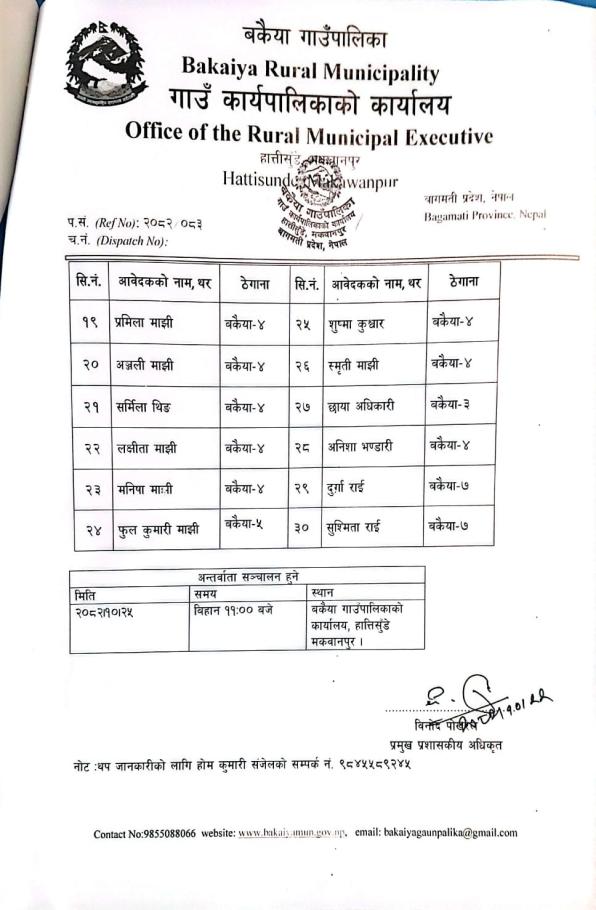 बकैया गाउँपालिका
Bakaiya Rural Municipality
गाउँ कार्यपालिकाको कार्यालय
Office of the Rural Municipal Executive
हात्तीसुँडे मकवानपुर
Hattisunde, Makawanpur
बकैया गाउँपालिका
गाउँ कार्यपालिकाको कार्यालय
हात्तीसुँडे, मकवानपुर
बागमती प्रदेश, नेपाल
बागमती प्रदेश, नेपाल
Bagamati Province, Nepal
प.सं. (Ref No): २०८२/०८३
च.नं. (Dispatch No):
सि.नं. आवेदकको नाम, थर ठेगाना सि.नं. आवेदकको नाम, थर ठेगाना
१९ प्रमिला माझी बकैया-४ २५ शुष्मा कुश्वार बकैया-४
२० अञ्जली माझी बकैया-४ २६ स्मृती माझी बकैया-४
२१ सर्मिला थिङ बकैया-४ २७ छाया अधिकारी बकैया-३
२२ लक्षीता माझी बकैया-४ २८ अनिशा भण्डारी बकैया-४
२३ मनिषा माझी बकैया-४ २९ दुर्गा राई बकैया-७
२४ फुल कुमारी माझी बकैया-५ ३० सुश्मिता राई बकैया-७
अन्तर्वाता सञ्चालन हुने
मिति समय स्थान
२०८२।१०।२५ विहान ११:०० बजे बकैया गाउँपालिकाको
कार्यालय, हात्तिसुँडे
मकवानपुर ।
विनोद
प्रमुख प्रशासकीय अधिकृत
नोट :थप जानकारीको लागि होम कुमारी संजेलको सम्पर्क नं. ९८४५५८९२४५
Contact No:9855088066 website: www.bakaiyamun.gov.np, email: bakaiyagaunpalika@gmail.com